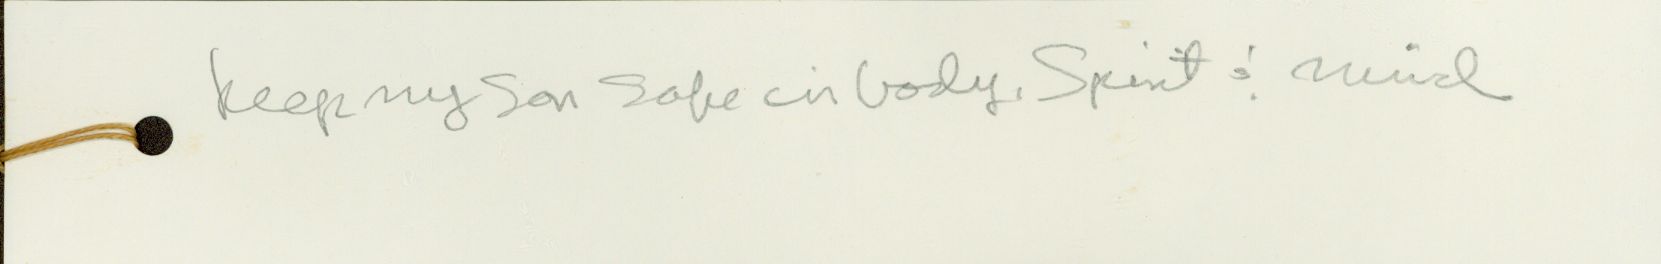 keep my son safe in body, Spirit & mind